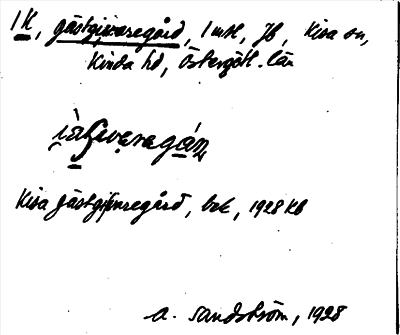 1 K, gästgivaregård, 1 mtl, Jb, Kisa sn,
Kinda hd, Östergötl. län
Kisa gästgivaregård, bok, 1928 KB
A. Sandström, 1928